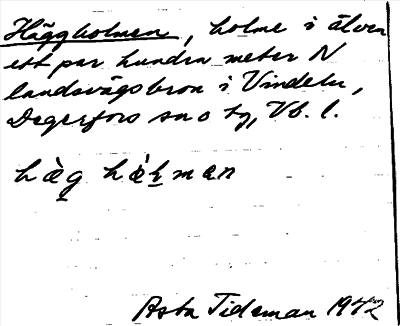 Häggholmen, holme i älven
ett par hundra meter N
landsvägsbron i Vindeln,
Degerfors sn o tg, Vb. l.
hàg
Asta Tideman 1972